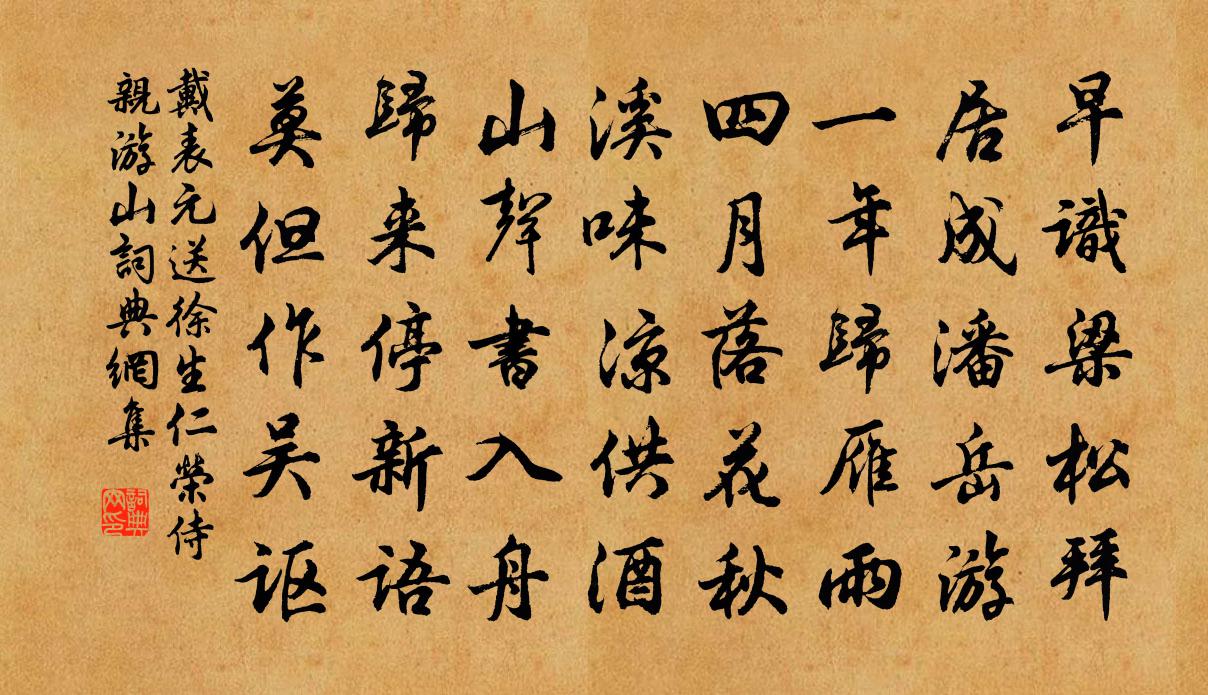 早識梁松拜
居成潘岳游
一年歸雁雨
四月落花秋
溪味涼供酒
山聲書入舟
歸来停新语
莫但作吴讴
戴表元送徐生仁榮侍
親游山詞典網集
詞典網印